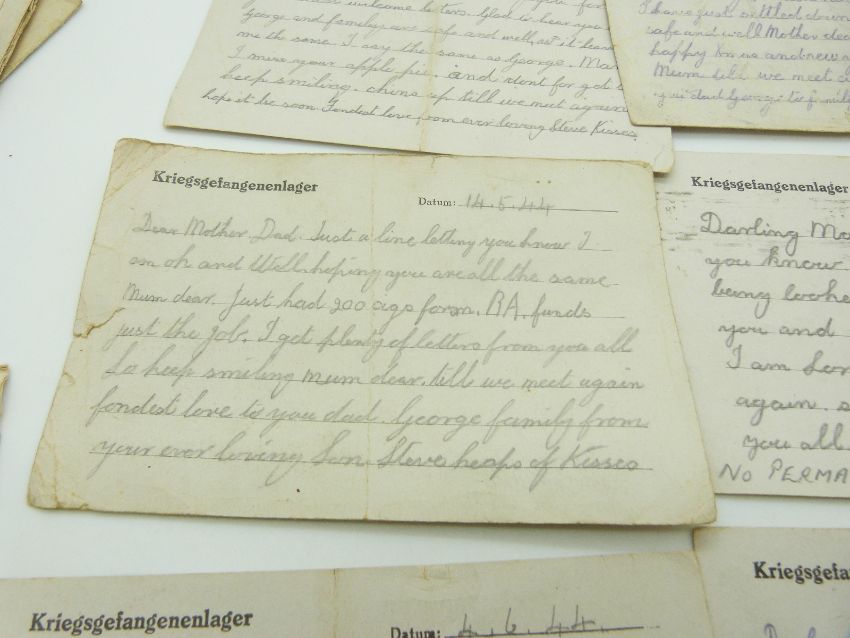 welcome letters. Glad to hear you
George and family are safe and well, as it leaves
me the same. I say the same as George. Mar
I miss your apple pie. and dont for get
keep smiling. chins up till we meet again
hope it be soon Fondest love from ever loving Steve Kisses
I have just settled down
safe and well Mother dea
happy Xmas and new
Mum till we meet a
you dad George to famil
Kriegsgefangenenlager
Datum: 14.5.44
Dear Mother Dad. Just a line letting you know I
am ok and Well. hoping you are all the same
Mum dear. Just had 200 cigs form. RA. funds
just the job. I get plenty of letters from you all
So keep smiling mum dear. till we meet again
fondest love to you dad. George family from
your ever loving Son. Steve heaps of Kisses
Kriegsgefangenenlager
Darling Mo
you know
being looke
you and
I am Sor
again. s
you all
NO PERMA
Kriegsgefangenenlager
Datum: 4.6.44.
Kriegsgefa